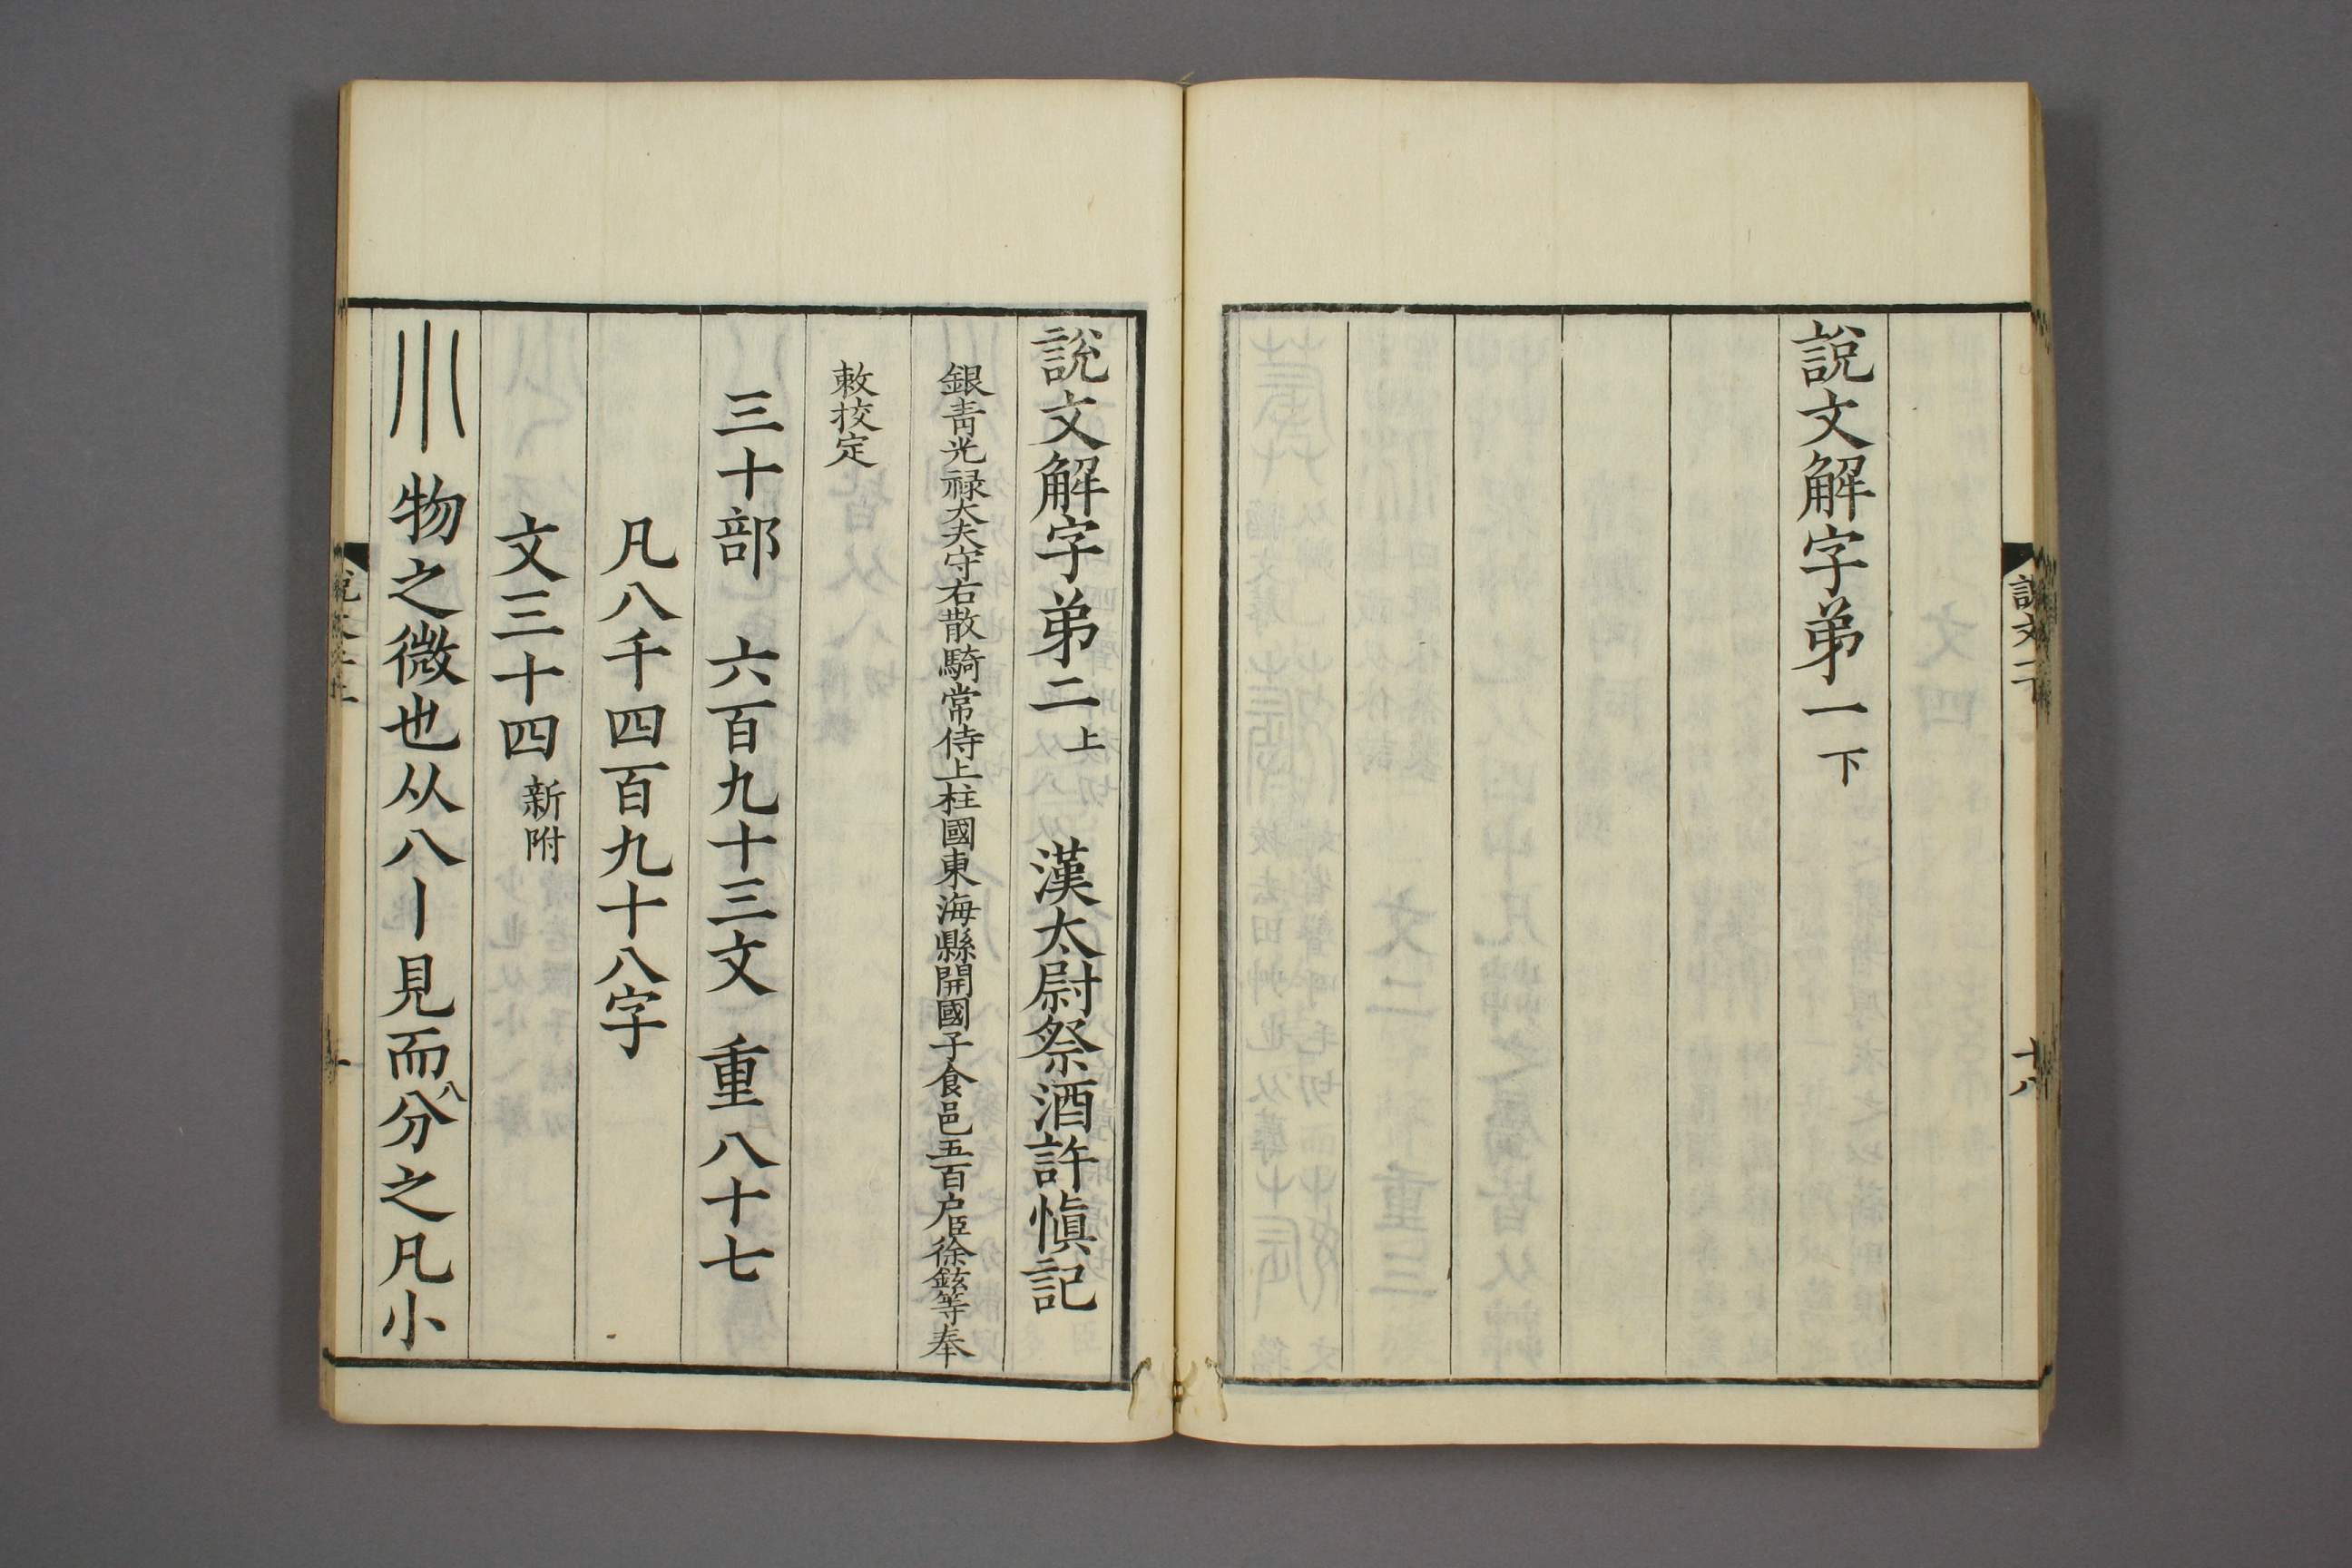 說文一下
十八
說文解字弟一下
說文解字弟二上 漢太尉祭酒許愼記
銀青光祿大夫守右散騎常侍上柱國東海縣開國子食邑五百户臣徐鉉等奉
敕挍定
三十部 六百九十三文 重八十七
凡八千四百九十八字
文三十四新附
川 物之微也从八丨見而八分之凡小